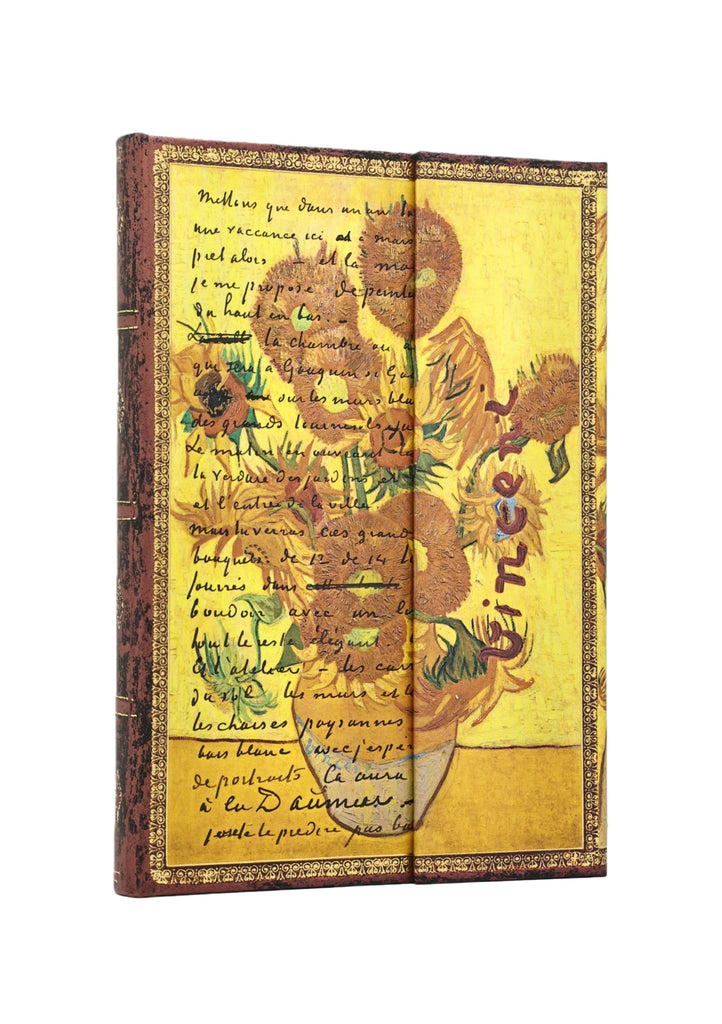 Mettons que dans un an tu
une vaccance ici et à mars
piet alors - et la ma
je me propose de peinte
du haut en bas. -
la chambre ou a
que sera à Gauguin si Gau
sur les murs bla
des grands tournesols jau
Le matin en ouvrant la
la verdure des jardins et
et l'entrée de la ville.
Mais tu verras ces grands
bouquets de 12 de 14 to
fourrés dans
boudoir avec un li
tout le reste élégant.
Et l'atelier - les carr
du sol les murs et le
les chaises paysannes
bois blanc avec j'esper
de portraits Ça aura
à la Daumier -
je te le predire pas ba
Vincent